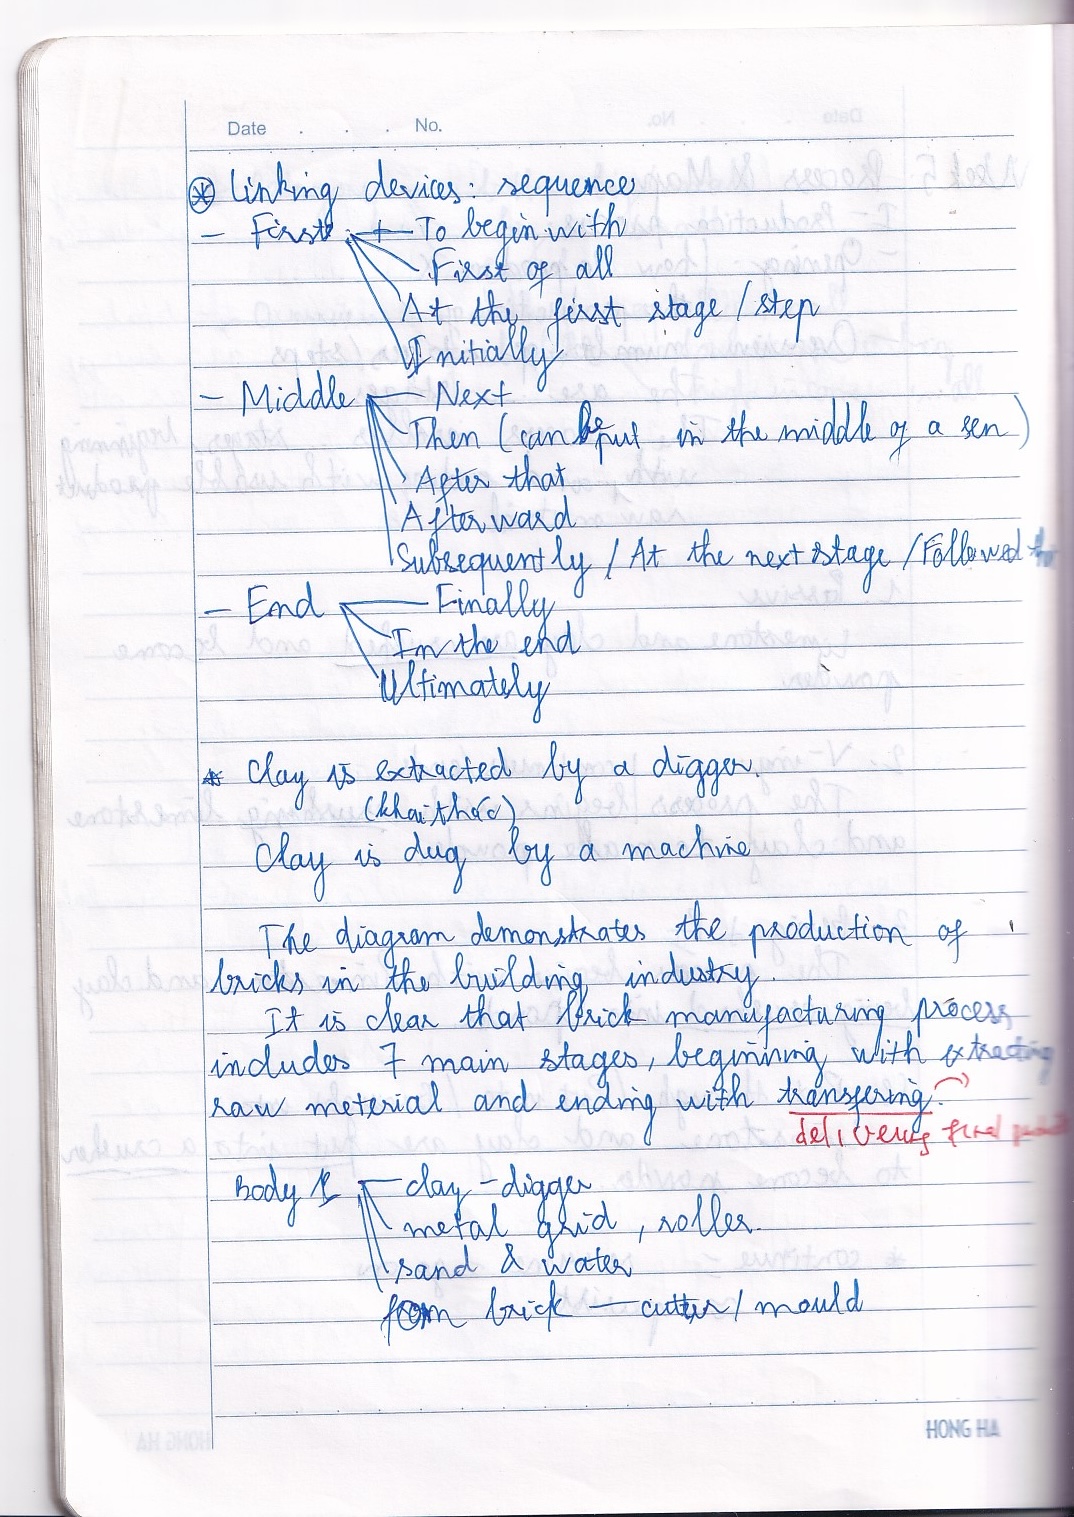 Date . . . No.
⊛ Linking devices: sequence
- First - To begin with
First of all
At the first stage / step
Initially
- Middle - Next
Then (can be put in the middle of a sen)
After that
Afterward
Subsequently / At the next stage / Followed
- End - Finally
In the end
Ultimately
* Clay is extracted by a digger.
(khai thác)
Clay is dug by a machine
The diagram demonstrates the production of
bricks in the building industry.
It is clear that brick manufacturing process
includes 7 main stages, beginning with extracting
raw meterial and ending with transfering.
delivering final
Body 1 - clay - digger
metal grid, roller.
sand & water
form brick — cutter / mould
HONG HA